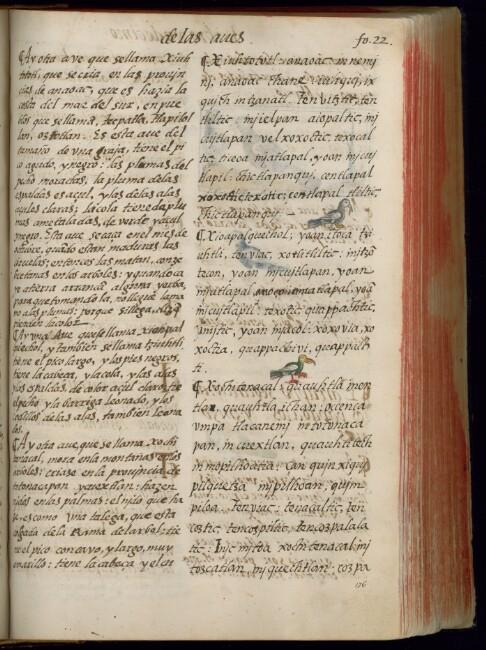 de las aues
fo. 22.
¶ Ay otra aue que se llama xiuh
tototl, que se cria en las prouin
cias de anaoac, que es hazia la
costa del mar del sur, en pue
blos que se llama, tecpatla, tlapilol
lan, oztotlan. Es esta aue del
tamaño de vna graja, tiene el pi
co agudo, y negro: las plumas del
pecho moradas, la pluma delas
espaldas es açul, y las delas alas
açules claras; la cola tiene de plu
mas ametaladas, de verde y açul
negro. Esta aue se caça en el mes de
octubre, quando estan maduras las
ciruelas; entonces las matan, con ze
bretanas en los arboles: y quando ca
e a tierra arrancan alguna yerba,
para que tomando la, no llegue la ma
no alas plumas: porque si llega,
pierden la color.
¶ Ay vna Aue que se llama xiopal
quechol, y tambien se llama tziuhtli:
tiene el pico largo, y los pies negros,
tiene la cabeça, y la cola, y las alas
y las espaldas, de color açul claro: tie
el pecho y la barriga leonado, y los
codillos de las alas, tambien leona
dos.
¶ Ay otra aue, que se llama xochi
tenacal, mora en la montañas
arboles: criase en la prouincia de
totonacapan y cuextlan: hazen
nidos en las palmas: el nido que ha
ze, es como vna talega, que esta
colgada de la rama del arbol: tie
ne el pico concauo, y largo, muy
amarillo: tiene la cabeça y el cu
¶ Xiuhtototl: anaoac mnemj
nj, anaoac chane, viuiquij, ix
qujch in tzanatl. tenvitztic, ten
tliltic mjielpan aiopaltic, mj
cujtlapan vel xoxoctic, texocal
tic, ticeoa mjatlapal, yoan mjcuj
tlapil:
tlichictlapanquj.
¶ Xioapalquechol, yoan itoca tzi
uhtli, tenviac, xotlitliltic: injtzõ
tecon, yoan mjcujtlapan, yoan
mjatlapal yoa
mjcujtlapil: texotic quappachtic,
yoan mjacol: xoxovia, xo
xoltza, quappachivi, quappiuh
ti.
¶ Xochitenacal: quauhtla mem
tlan, quauhtla ichan: oc cenca
vmpa tlacanemj in totonaca
pan, in cuextlan, quauhtitech
in mopilhoatia: çan qujn xiqui
piuquetza mjpilhoan, qujm
piloa. tenviac: tenacaltic, ten
coztic, tencoztiltic, tencozpalala
tic: Injc mjtoa xochitenacal mj
tozcatlan, mj quechtlan: cozpa
176